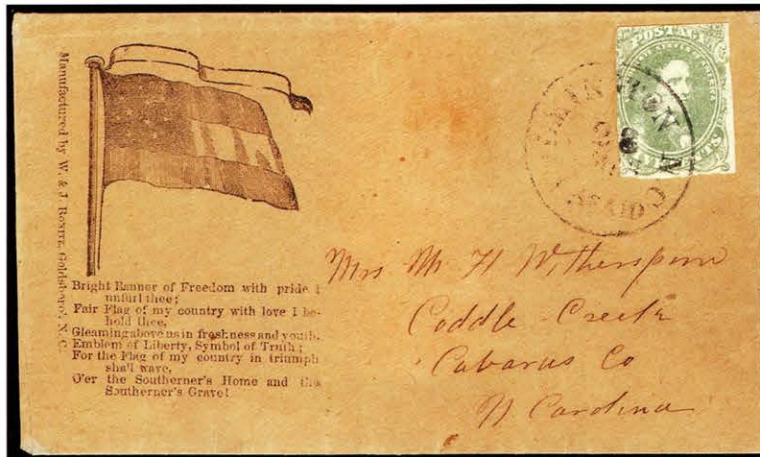 Manufactured by W. & J. Bonitz, Goldsboro', N. C.
Bright Banner of Freedom with pride I
unfurl thee;
Fair Flag of my country with love I be-
hold thee,
Gleaming above us in freshness and youth,
Emblem of Liberty, Symbol of Truth;
For the Flag of my country in triumph
shall wave,
O'er the Southerner's Home and the
Southerner's Grave!
POSTAGE
STATES OF AMERICA
FIVE CENTS
WILMINGTON N.C.
8
PAID
Mrs M H Witherspoon
Coddle Creek
Cabarus Co
N Carolina